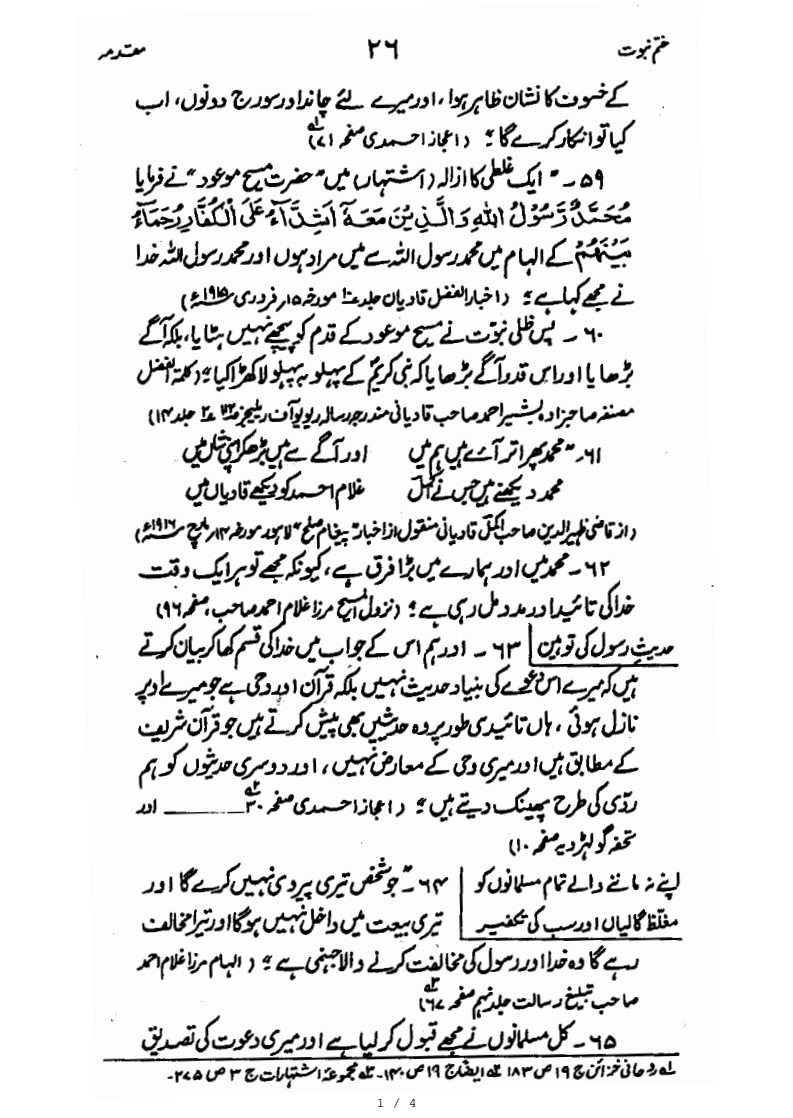 ختم نبوت ۲۶ مقدمہ
کے خسوف کا نشان ظاہر ہوا، اور میرے لئے چاند اور سورج دونوں، اب
کیا تو انکار کرے گا؟ (اعجاز احمدی صفحہ ۷۱)
۵۹۔ "ایک غلطی کا ازالہ (اشتہار) میں "حضرت مسیح موعود" نے فرمایا
مُحَمَّدٌ رَّسُوْلُ اللہِ وَالَّذِيْنَ مَعَهٗٓ اَشِدَّآءُ عَلَی الْکُفَّارِ رُحَمَآءُ
بَيْنَهُمْ کے الہام میں محمد رسول اللہ سے میں مراد ہوں اور محمد رسول اللہ خدا
نے مجھے کہا ہے؛ (اخبار الفضل قادیان جلد ۱۰ مورخہ ۱۵؍ فروری ۱۹۱۵ء)
۶۰۔ پس ظلی نبوت نے مسیح موعود کے قدم کو پیچھے نہیں ہٹایا، بلکہ آگے
بڑھایا اور اس قدر آگے بڑھایا کہ نبی کریمؐ کے پہلو بہ پہلو لا کھڑا کیا؛ (کلمۃ الفصل
مصنفہ صاحبزادہ بشیر احمد صاحب قادیانی مندرجہ رسالہ ریویو آف ریلیجنز جلد ۱۴)
۶۱۔ "محمد پھر اتر آئے ہیں ہم میں اور آگے سے ہیں بڑھ کر اپنی شان میں
محمد دیکھنے ہیں جس نے اکمل غلام احمد کو دیکھے قادیاں میں
(از قاضی ظہیر الدین صاحب اکمل قادیانی منقول از اخبار "پیغام صلح" لاہور مورخہ ۱۴؍ مارچ ۱۹۱۶ء)
۶۲۔ محمد میں اور ہمارے میں بڑا فرق ہے، کیونکہ مجھے تو ہر ایک وقت
خدا کی تائید اور مدد مل رہی ہے؛ (نزول المسیح مرزا غلام احمد صاحب، صفحہ ۹۶)
حدیث رسول کی توہین ۶۳۔ اور ہم اس کے جواب میں خدا کی قسم کھا کر بیان کرتے
ہیں کہ میرے اس دعوے کی بنیاد حدیث نہیں بلکہ قرآن اور وحی ہے جو میرے اوپر
نازل ہوئی، ہاں تائیدی طور پر وہ حدیثیں بھی پیش کرتے ہیں جو قرآن شریف
کے مطابق ہیں اور میری وحی کے معارض نہیں، اور دوسری حدیثوں کو ہم
ردّی کی طرح پھینک دیتے ہیں؛ (اعجاز احمدی صفحہ ۳۰ ــــــــ اور
تحفہ گولڑویہ صفحہ ۱۰)
اپنے نہ ماننے والے تمام مسلمانوں کو ۶۴۔ "جو شخص تیری پیروی نہیں کرے گا اور
مغلظ گالیاں اور سب کی تکفیر تیری بیعت میں داخل نہیں ہوگا اور تیرا مخالف
رہے گا وہ خدا اور رسول کی مخالفت کرنے والا جہنمی ہے؛ (الہام مرزا غلام احمد
صاحب تبلیغ رسالت جلد نہم صفحہ ۲۷)
۶۵۔ کل مسلمانوں نے مجھے قبول کر لیا ہے اور میری دعوت کی تصدیق
لہ روحانی خزائن ج ۱۹ ص ۱۸۳ لہ ایضاً ج ۱۹ ص ۱۴۰۔ لہ مجموعۂ اشتہارات ج ۳ ص ۲۷۵۔
1 / 4